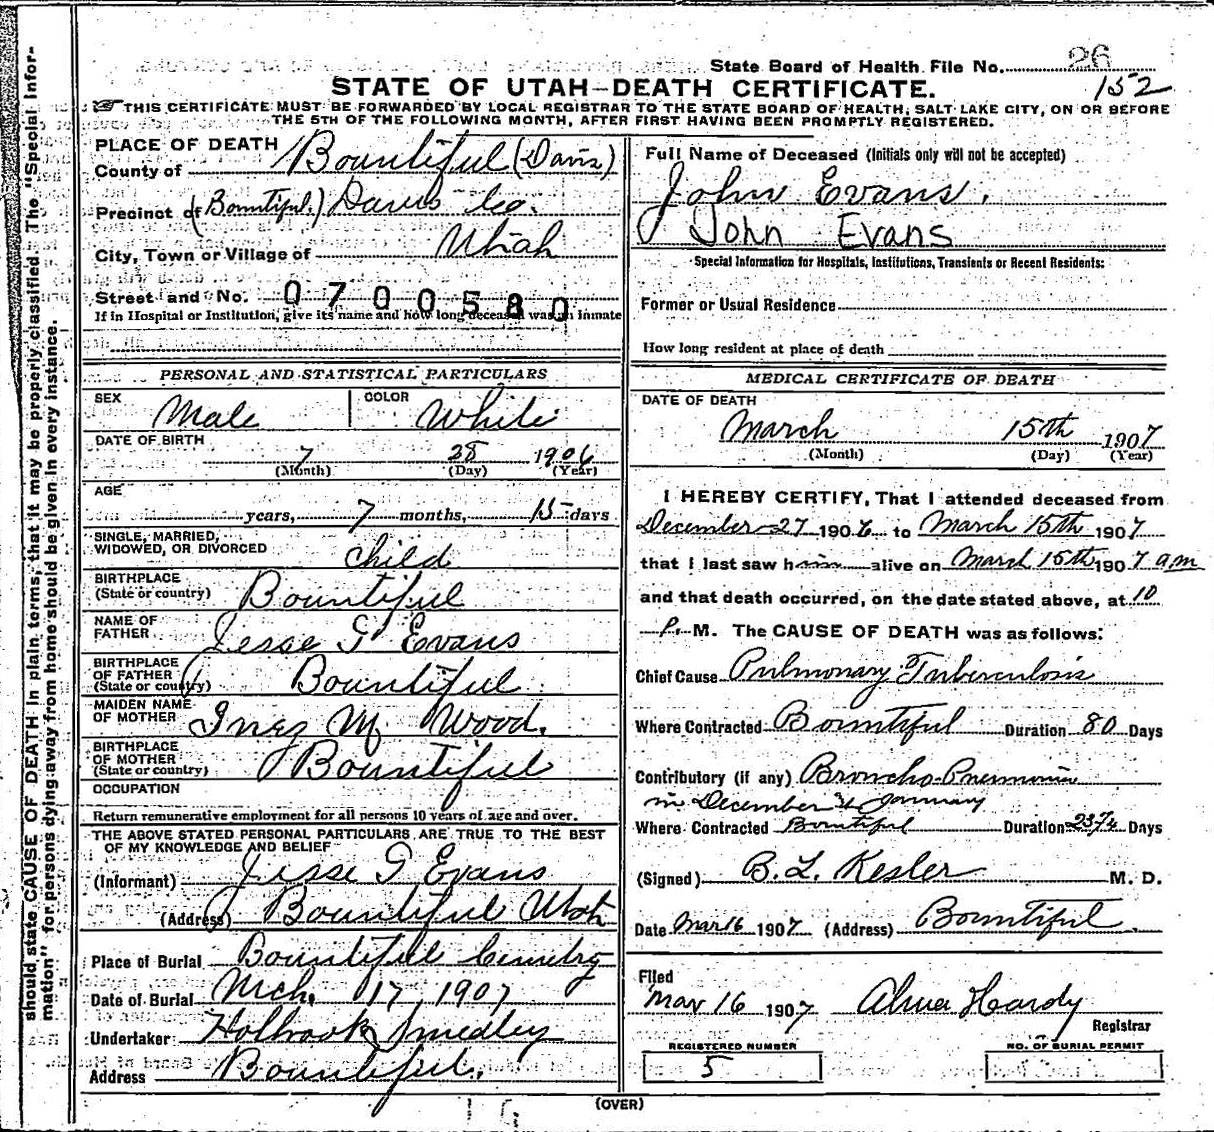 State Board of Health File No. 26
152
STATE OF UTAH—DEATH CERTIFICATE.
THIS CERTIFICATE MUST BE FORWARDED BY LOCAL REGISTRAR TO THE STATE BOARD OF HEALTH, SALT LAKE CITY, ON OR BEFORE
THE 5TH OF THE FOLLOWING MONTH, AFTER FIRST HAVING BEEN PROMPTLY REGISTERED.
should state CAUSE OF DEATH in plain terms, that it may be properly classified. The "Special Infor-
mation" for persons dying away from home should be given in every instance.
PLACE OF DEATH
County of Bountiful (Davis)
Precinct of (Bountiful) Davis Co.
City, Town or Village of Utah
Street and No. 0700580
If in Hospital or Institution, give its name and how long deceased was an inmate
PERSONAL AND STATISTICAL PARTICULARS
SEX Male COLOR White
DATE OF BIRTH
7 28 1906
(Month) (Day) (Year)
AGE
years, 7 months, 15 days
SINGLE, MARRIED,
WIDOWED, OR DIVORCED child
BIRTHPLACE
(State or country) Bountiful
NAME OF
FATHER Jesse G Evans
BIRTHPLACE
OF FATHER
(State or country) Bountiful
MAIDEN NAME
OF MOTHER Inez M Wood.
BIRTHPLACE
OF MOTHER
(State or country) Bountiful
OCCUPATION
Return remunerative employment for all persons 10 years of age and over.
THE ABOVE STATED PERSONAL PARTICULARS ARE TRUE TO THE BEST
OF MY KNOWLEDGE AND BELIEF
(Informant) Jesse G Evans
(Address) Bountiful Utah
Place of Burial Bountiful Cemetry
Date of Burial Mch. 17, 1907
Undertaker Holbrook & Smedley
Address Bountiful.
Full Name of Deceased (Initials only will not be accepted)
John Evans.
John Evans
Special Information for Hospitals, Institutions, Transients or Recent Residents:
Former or Usual Residence
How long resident at place of death
MEDICAL CERTIFICATE OF DEATH
DATE OF DEATH
March 15th 1907
(Month) (Day) (Year)
I HEREBY CERTIFY, That I attended deceased from
December 27 1906 to March 15th 1907
that I last saw him alive on March 15th 1907 am
and that death occurred, on the date stated above, at 10
P. M. The CAUSE OF DEATH was as follows:
Chief Cause Pulmonary Tuberculosis
Where Contracted Bountiful Duration 80 Days
Contributory (if any) Broncho-Pneumonia
in December & January
Where Contracted Bountiful Duration Days
(Signed) B. L. Kesler M. D.
Date Mar 16 1907 (Address) Bountiful.
Filed
Mar 16 1907 Alma Hardy
Registrar
REGISTERED NUMBER
5
NO. OF BURIAL PERMIT
(OVER)